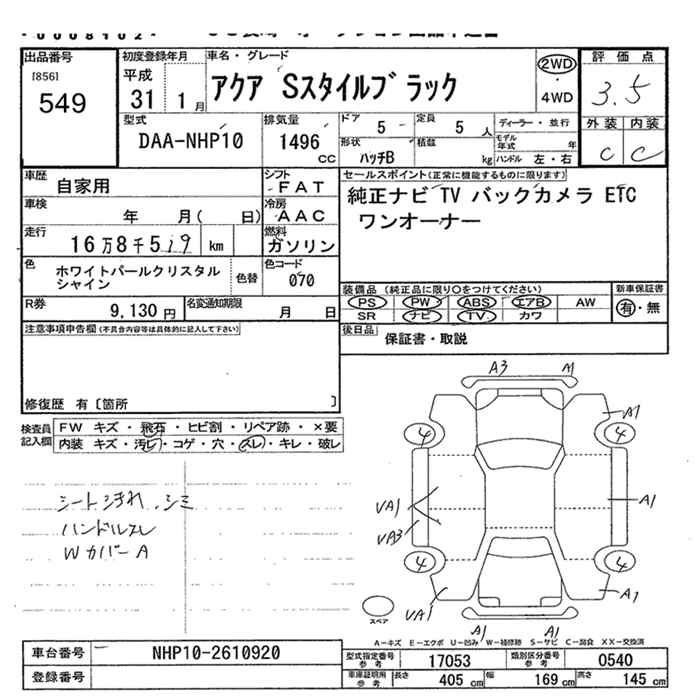 出品番号
[856]
549
初度登録年月
平成
31 1月
車名・グレード
アクア Sスタイルブラック
2WD
・
4WD
評価点
3.5
外装 内装
C C
型式
DAA-NHP10
排気量
1496
cc
ドア 5
定員 5 人
ディーラー・並行
形状
ハッチB
積載
kg
モデル年式 年
ハンドル 左・右
車歴
自家用
シフト
FAT
車検
年 月( 日)
冷房
AAC
走行
16万8千519 km
燃料
ガソリン
セールスポイント(正常に機能するものに限ります)
純正ナビ TV バックカメラ ETC
ワンオーナー
色
ホワイトパールクリスタル
シャイン
色替
色コード
070
装備品(純正品に限り○をつけてください)
新車保証書
PS PW ABS エアB AW
有・無
SR ナビ TV カワ
R券
9,130円
名変通知期限
月 日
後日品
保証書・取説
注意事項申告欄(不具合内容等は具体的に記入して下さい)
修復歴 有〔箇所 〕
検査員
記入欄
FW キズ・飛石・ヒビ割・リペア跡・×要
内装 キズ・汚レ・コゲ・穴・スレ・キレ・破レ
シートよごれ、シミ
ハンドルスレ
Wカバー A
A3 A1
A1
4 4
VA1
A1
VA3
4 4
VA1
A1
スペア
A1 A1
A-キズ E-エクボ U-凹み W-補修跡 S-サビ C-腐食 XX-交換済
車台番号
NHP10-2610920
登録番号
型式指定番号
参考
17053
類別区分番号
参考
0540
車庫証明用
参考
長さ 405 cm
幅 169 cm
高さ 145 cm